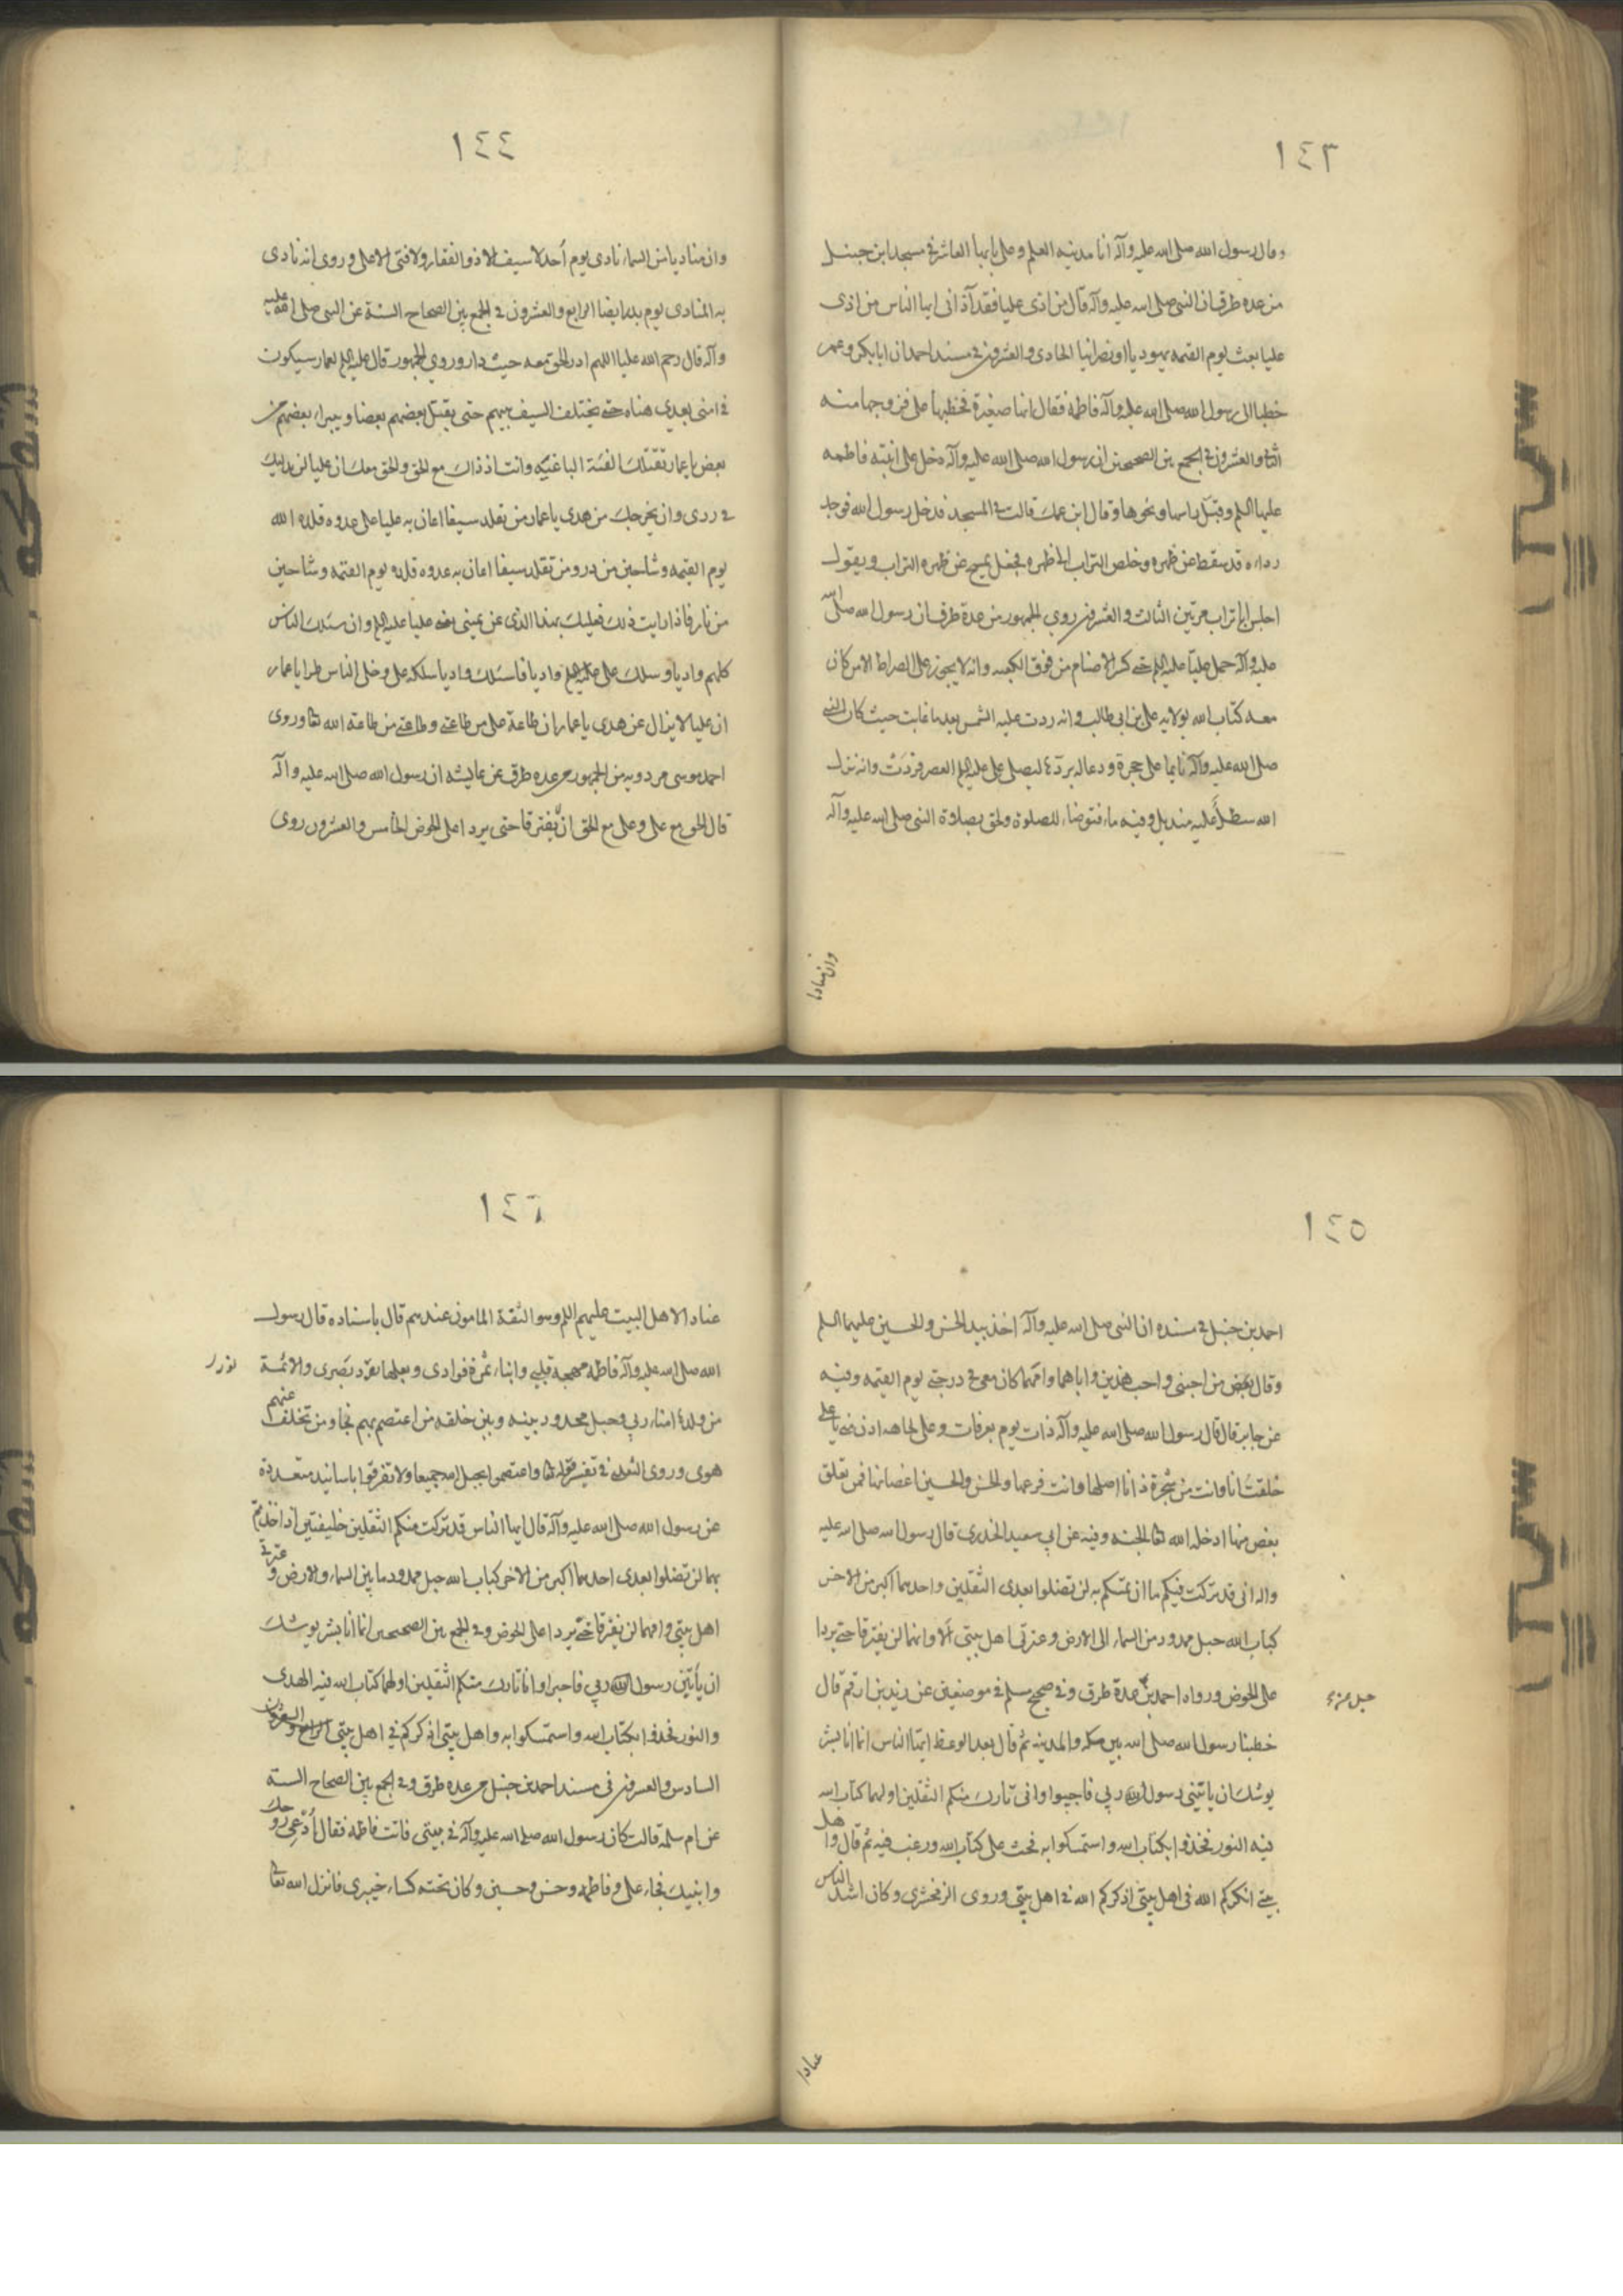 ١٤٣
وقال رسول الله صلى الله عليه وآله انا مدينه العلم وعلى بابها العاشر في مسند ابن حنبل
من عده طرق ان النبي صلى الله عليه وآله قال من اذى عليا فقد آذانى ايها الناس من اذى
عليا بعث يوم القيمه يهوديا او نصرانيا الحادى والعشرون في مسند احمد ان ابا بكر وعمر
خطبا الى رسول الله صلى الله عليه وآله فاطمه فقال انها صغيرة فخطبها على فزوجها منه
الثانى والعشرون في الجمع بين الصحيحين ان رسول الله صلى الله عليه وآله دخل على ابنته فاطمه
عليها السلم وقبل راسها ونحرها وقال ابن عمك قالت في المسجد فدخل رسول الله فوجد
رداءه قد سقط عن ظهره وخلص التراب الى ظهره فجعل يمسح عن ظهره التراب ويقول
اجلس ابا تراب مرتين الثالث والعشرون روى الجمهور من عدة طرق ان رسول الله صلى الله
عليه وآله حمل عليا عليه السلم حتى كسر الاصنام من فوق الكعبه وانه لا يجوز على الصراط الا من كان
معه كتاب الله بولايه على بن ابى طالب وانه ردت عليه الشمس بعد ما غابت حيث كان النبي
صلى الله عليه وآله نايما على حجرة ودعا له بردها ليصلى على عليه السلم العصر فردت وانه نزل
اليه سطل عليه منديل وفيه ماء فتوضاء للصلوة ولحق بصلاة النبي صلى الله عليه وآله
وان مناديا
١٤٤
وان مناديا من السماء نادى يوم أحد لا سيف الا ذو الفقار ولا فتى الا على وروى انه نادى
به المنادى يوم بدر ايضا الرابع والعشرون في الجمع بين الصحاح الستة عن النبي صلى الله عليه
وآله قال رحم الله عليا اللهم ادر الحق معه حيث دار وروى الجمهور قال عليه السلم لعمار سيكون
في امتى بعدى هناه حتى يختلف السيف بينهم حتى يقتل بعضهم بعضا ويبراء بعضهم من
بعض يا عمار تقتلك الفئة الباغيه وانت اذ ذاك مع الحق والحق معك ان عليا لن يدليك
في ردى ولن يخرجك من هدى يا عمار من تقلد سيفا اعان به عليا على عدوه قلده الله
يوم القيمه وشاحين من در ومن تقلد سيفا اعان به عدوه قلده يوم القيمه وشاحين
من نار فاذا رايت ذلك فعليك بهذا الذى عن يمينى يعنى عليا عليه السلم وان سلك الناس
كلهم واديا وسلك على عليه السلم واديا فاسلك واديا سلكه على وخلى الناس طرا يا عمار
ان عليا لا يزال عن هدى يا عمار ان طاعة على من طاعتى وطاعتى من طاعه الله تعا وروى
احمد موسى مردويه من الجمهور من عده طرق عن عايشه ان رسول الله صلى الله عليه وآله
قال الحق مع على وعلى مع الحق لن يفترقا حتى يردا على الحوض الخامس والعشرون روى
١٤٥
احمد بن حنبل في مسنده ان النبي صلى الله عليه وآله اخذ بيد الحسن والحسين عليهما السلم
وقال من احبنى واحب هذين واباهما وامهما كان معى في درجتى يوم القيمه وفيه
عن جابر قال قال رسول الله صلى الله عليه وآله ذات يوم بعرفات وعلى تجاهه ادن منى يا على
خلقت انا وانت من شجرة انا اصلها وانت فرعها والحسن والحسين اغصانها فمن تعلق
بغصن منها ادخله الله تعا الجنه وفيه عن ابى سعيد الخدرى قال رسول الله صلى الله عليه
وآله انى قد تركت فيكم ما ان تمسكتم به لن تضلوا بعدى الثقلين واحدهما اكبر من الاخر
كتاب الله حبل ممدود من السماء الى الارض وعترتى اهل بيتى ألا وانهما لن يفترقا حتى يردا
على الحوض ورواه احمد من عدة طرق وفي صحيح مسلم في موضعين عن زيد بن ارقم قال
خطبنا رسول الله صلى الله بين مكه والمدينه ثم قال بعد الوعظ ايها الناس انما أنا بشر
يوشك ان ياتينى رسول ربي فاجيب وانى تارك فيكم الثقلين اولهما كتاب الله
فيه النور فخذوا بكتاب الله واستمسكوا به فحث على كتاب الله ورغب فيه ثم قال واهل
بيتى اذكركم الله في اهل بيتى اذكركم الله في اهل بيتى وروى الزمخشرى وكان اشد الناس
عنادا
١٤٦
عنادا لاهل البيت عليهم السلم وهو الثقة المامون عندهم قال باسناده قال رسول
الله صلى الله عليه وآله فاطمه مهجه قلبي وابناء ثمرة فوادى وبعلها نور بصرى والائمة
من ولدها امناء ربي وحبل ممدود بينه وبين خلقه من اعتصم بهم نجا ومن تخلف عنهم
هوى وروى الثعلبى في تفسير قوله تعا واعتصموا بحبل الله جميعا ولا تفرقوا باسانيد متعددة
عن رسول الله صلى الله عليه وآله قال ايها الناس قد تركت فيكم الثقلين خليفتين ان اخذتم
بهما لن تضلوا بعدى احدهما اكبر من الاخر كتاب الله حبل ممدود ما بين السماء والارض وعترتى
اهل بيتى وانهما لن يفترقا حتى يردا على الحوض وفي الجمع بين الصحيحين انما أنا بشر يوشك
ان يأتين رسول ربي فاجيب وانا تارك فيكم الثقلين اولهما كتاب الله فيه الهدى
والنور فخذوا بكتاب الله واستمسكوا به واهل بيتى اذكركم في اهل بيتى
السادس والعشرون في مسند احمد بن حنبل من عده طرق وفي الجمع بين الصحاح السته
عن ام سلمة قالت كان رسول الله صلى الله عليه وآله في بيتى فاتت فاطمه فقال أدعى زوجك
وابنيك فجاء على وفاطمه وحسن وحسين وكان تحته كساء خيبرى فانزل الله تعا